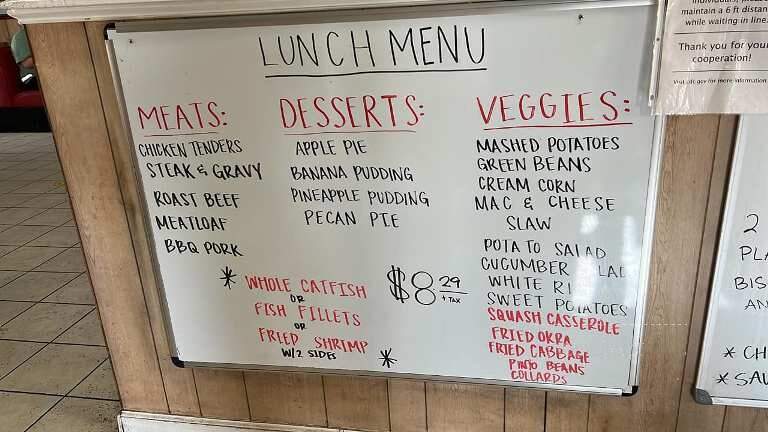 LUNCH MENU
MEATS:
CHICKEN TENDERS
STEAK & GRAVY
ROAST BEEF
MEATLOAF
BBQ PORK
DESSERTS:
APPLE PIE
BANANA PUDDING
PINEAPPLE PUDDING
PECAN PIE
VEGGIES:
MASHED POTATOES
GREEN BEANS
CREAM CORN
MAC & CHEESE
SLAW
POTATO SALAD
CUCUMBER
WHITE
SWEET POTATOES
SQUASH CASSEROLE
FRIED OKRA
FRIED CABBAGE
PINTO BEANS
COLLARDS
* WHOLE CATFISH
OR
FISH FILLETS
OR
FRIED SHRIMP
W/2 SIDES *
$8.29
+ TAX
maintain a 6 ft distan
while waiting in line.
Thank you for your
cooperation!
2
PLA
BIS
AN
* CH
* SAU